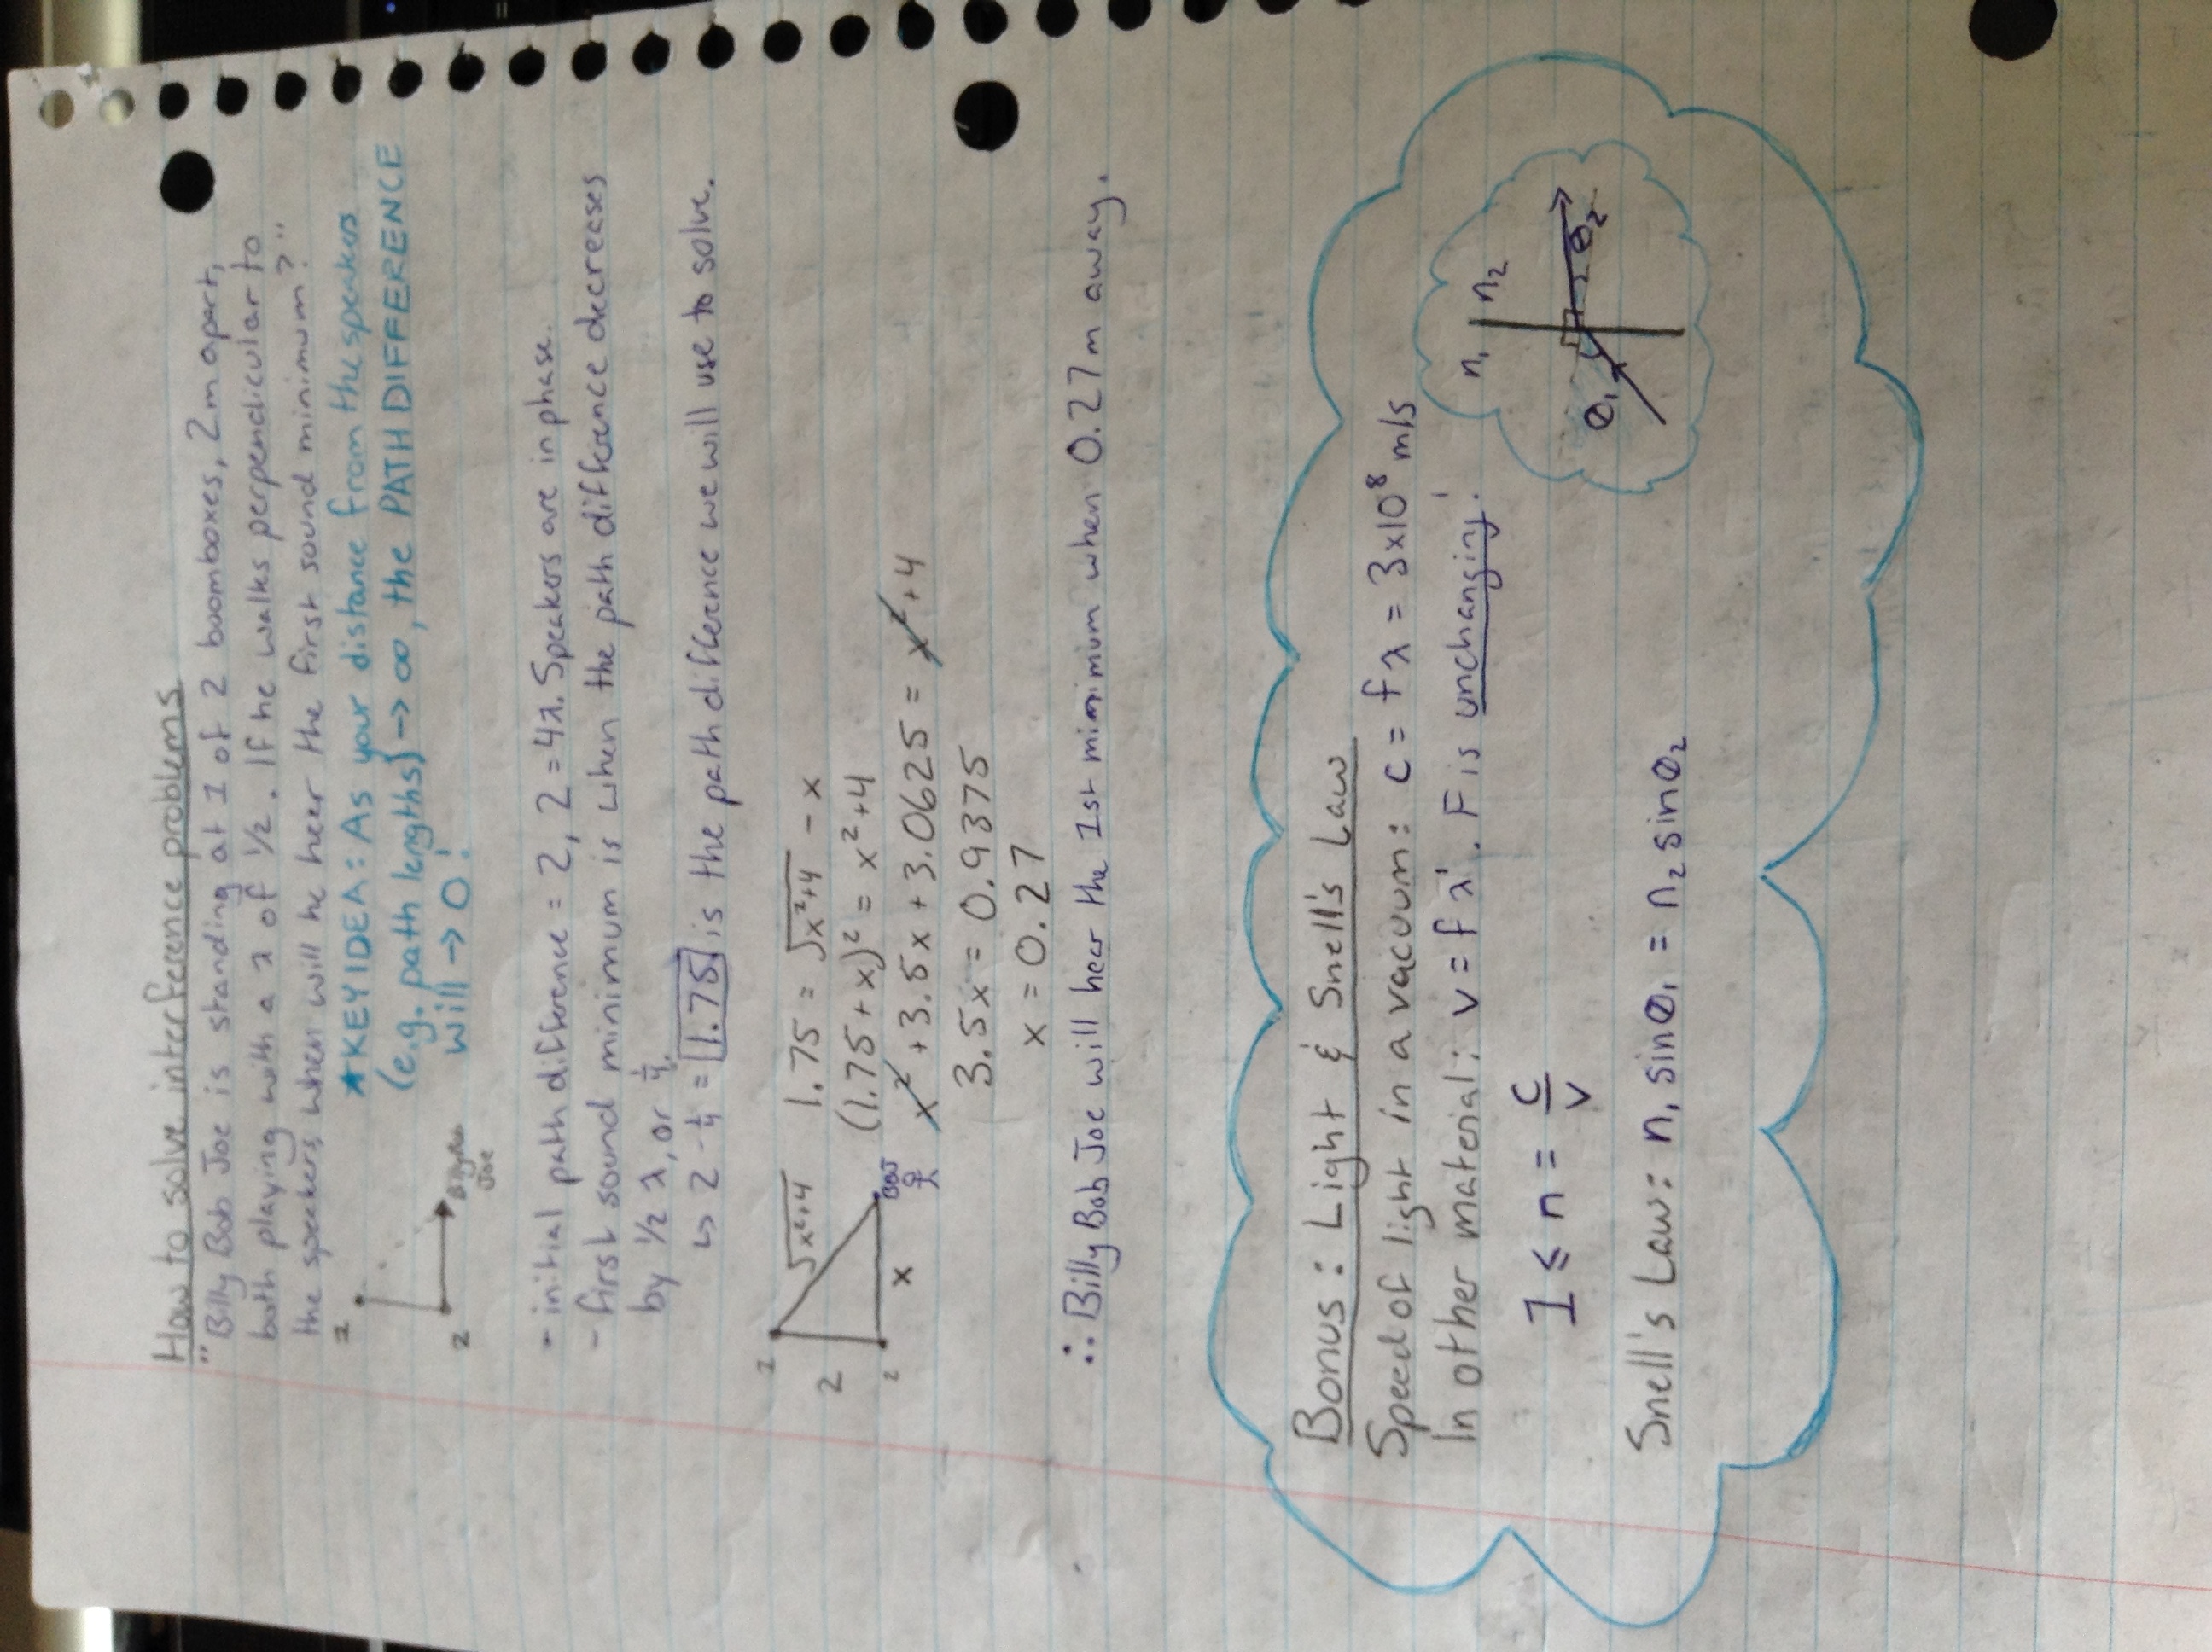 How to solve interference problems
"Billy Bob Joe is standing at 1 of 2 boomboxes, 2m apart,
both playing with a λ of ½. If he walks perpendicular to
the speakers, when will he hear the first sound minimum?"
★KEY IDEA: As your distance from the speakers
(e.g. path lengths) → ∞, the PATH DIFFERENCE
will → 0!
1
2
Joe
- initial path difference = 2, 2 = 4λ. Speakers are in phase.
- first sound minimum is when the path difference decreases
by ½ λ, or ¼.
↳ 2 - ¼ = 1.75 is the path difference we will use to solve.
1
2
2
√x²+4
x
BBJ
1.75 = √x²+4 - x
(1.75 + x)² = x² + 4
x² + 3.5x + 3.0625 = x² + 4
3.5x = 0.9375
x = 0.27
∴ Billy Bob Joe will hear the 1st minimum when 0.27m away.
Bonus: Light & Snell's Law
Speed of light in a vacuum: c = fλ = 3x10⁸ m/s
In other material: v = fλ'. F is unchanging!
1 ≤ n = c/v
Snell's Law: n₁ sinθ₁ = n₂ sinθ₂
n₁ n₂
θ₁ θ₂